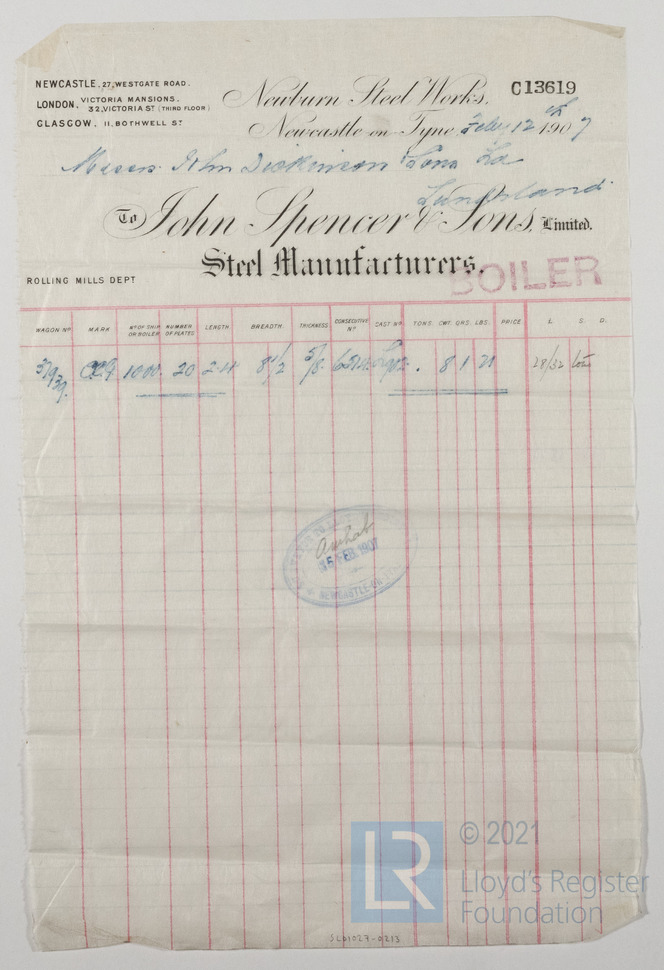 NEWCASTLE, 27, WESTGATE ROAD.
LONDON, VICTORIA MANSIONS, 32, VICTORIA ST (THIRD FLOOR)
GLASGOW, 11, BOTHWELL ST
Newburn Steel Works,
C13619
Newcastle on Tyne, Feby 12th 1907
Messrs John Dickinson & Sons Ld
Sunderland.
To John Spencer & Sons, Limited.
Steel Manufacturers.
BOILER
ROLLING MILLS DEPT
WAGON No MARK No OF SHIP OR BOILER NUMBER OF PLATES LENGTH BREADTH THICKNESS CONSECUTIVE No CAST No TONS. CWT. QRS. LBS. PRICE L. S. D.
1000 20 2-11 8 1/2 5/8 . 8 1 21 28/32 tons
15 FEB. 1907
NEWCASTLE-ON
© 2021
LR
Lloyd's Register
Foundation
SLD1027-0213